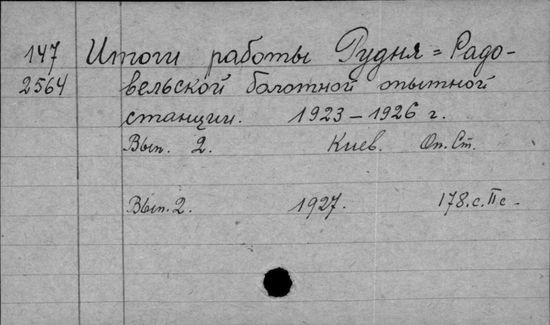 147 Итоги работы Рудня=Радо-
2564 вельской болотной опытной
станции. 1923-1926 г.
Вып. 2. Киев. Оп. Ст.
Вып. 2. 1927. 178.с. IIс.